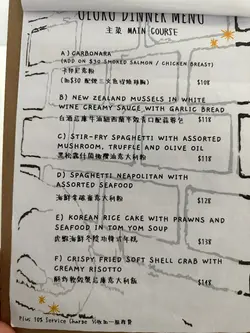 DINNER MENU
主菜 MAIN COURSE
A) CARBONARA
(ADD ON $30 SMOKED SALMON / CHICKEN BREAST)
卡邦尼意粉
$108
B) NEW ZEALAND MUSSELS IN WHITE
WINE CREAMY SAUCE WITH GARLIC BREAD
$118
C) STIR-FRY SPAGHETTI WITH ASSORTED
MUSHROOM, TRUFFLE AND OLIVE OIL
黑松露什菌橄欖油意大利粉
$118
D) SPAGHETTI NEAPOLITAN WITH
ASSORTED SEAFOOD
意大利粉
E) KOREAN RICE CAKE WITH PRAWNS AND
SEAFOOD IN TOM YUM SOUP
$138
F) CRISPY FRIED SOFT SHELL CRAB WITH
CREAMY RISOTTO
$148
Plus 10% Service Charge 另收加一服務費